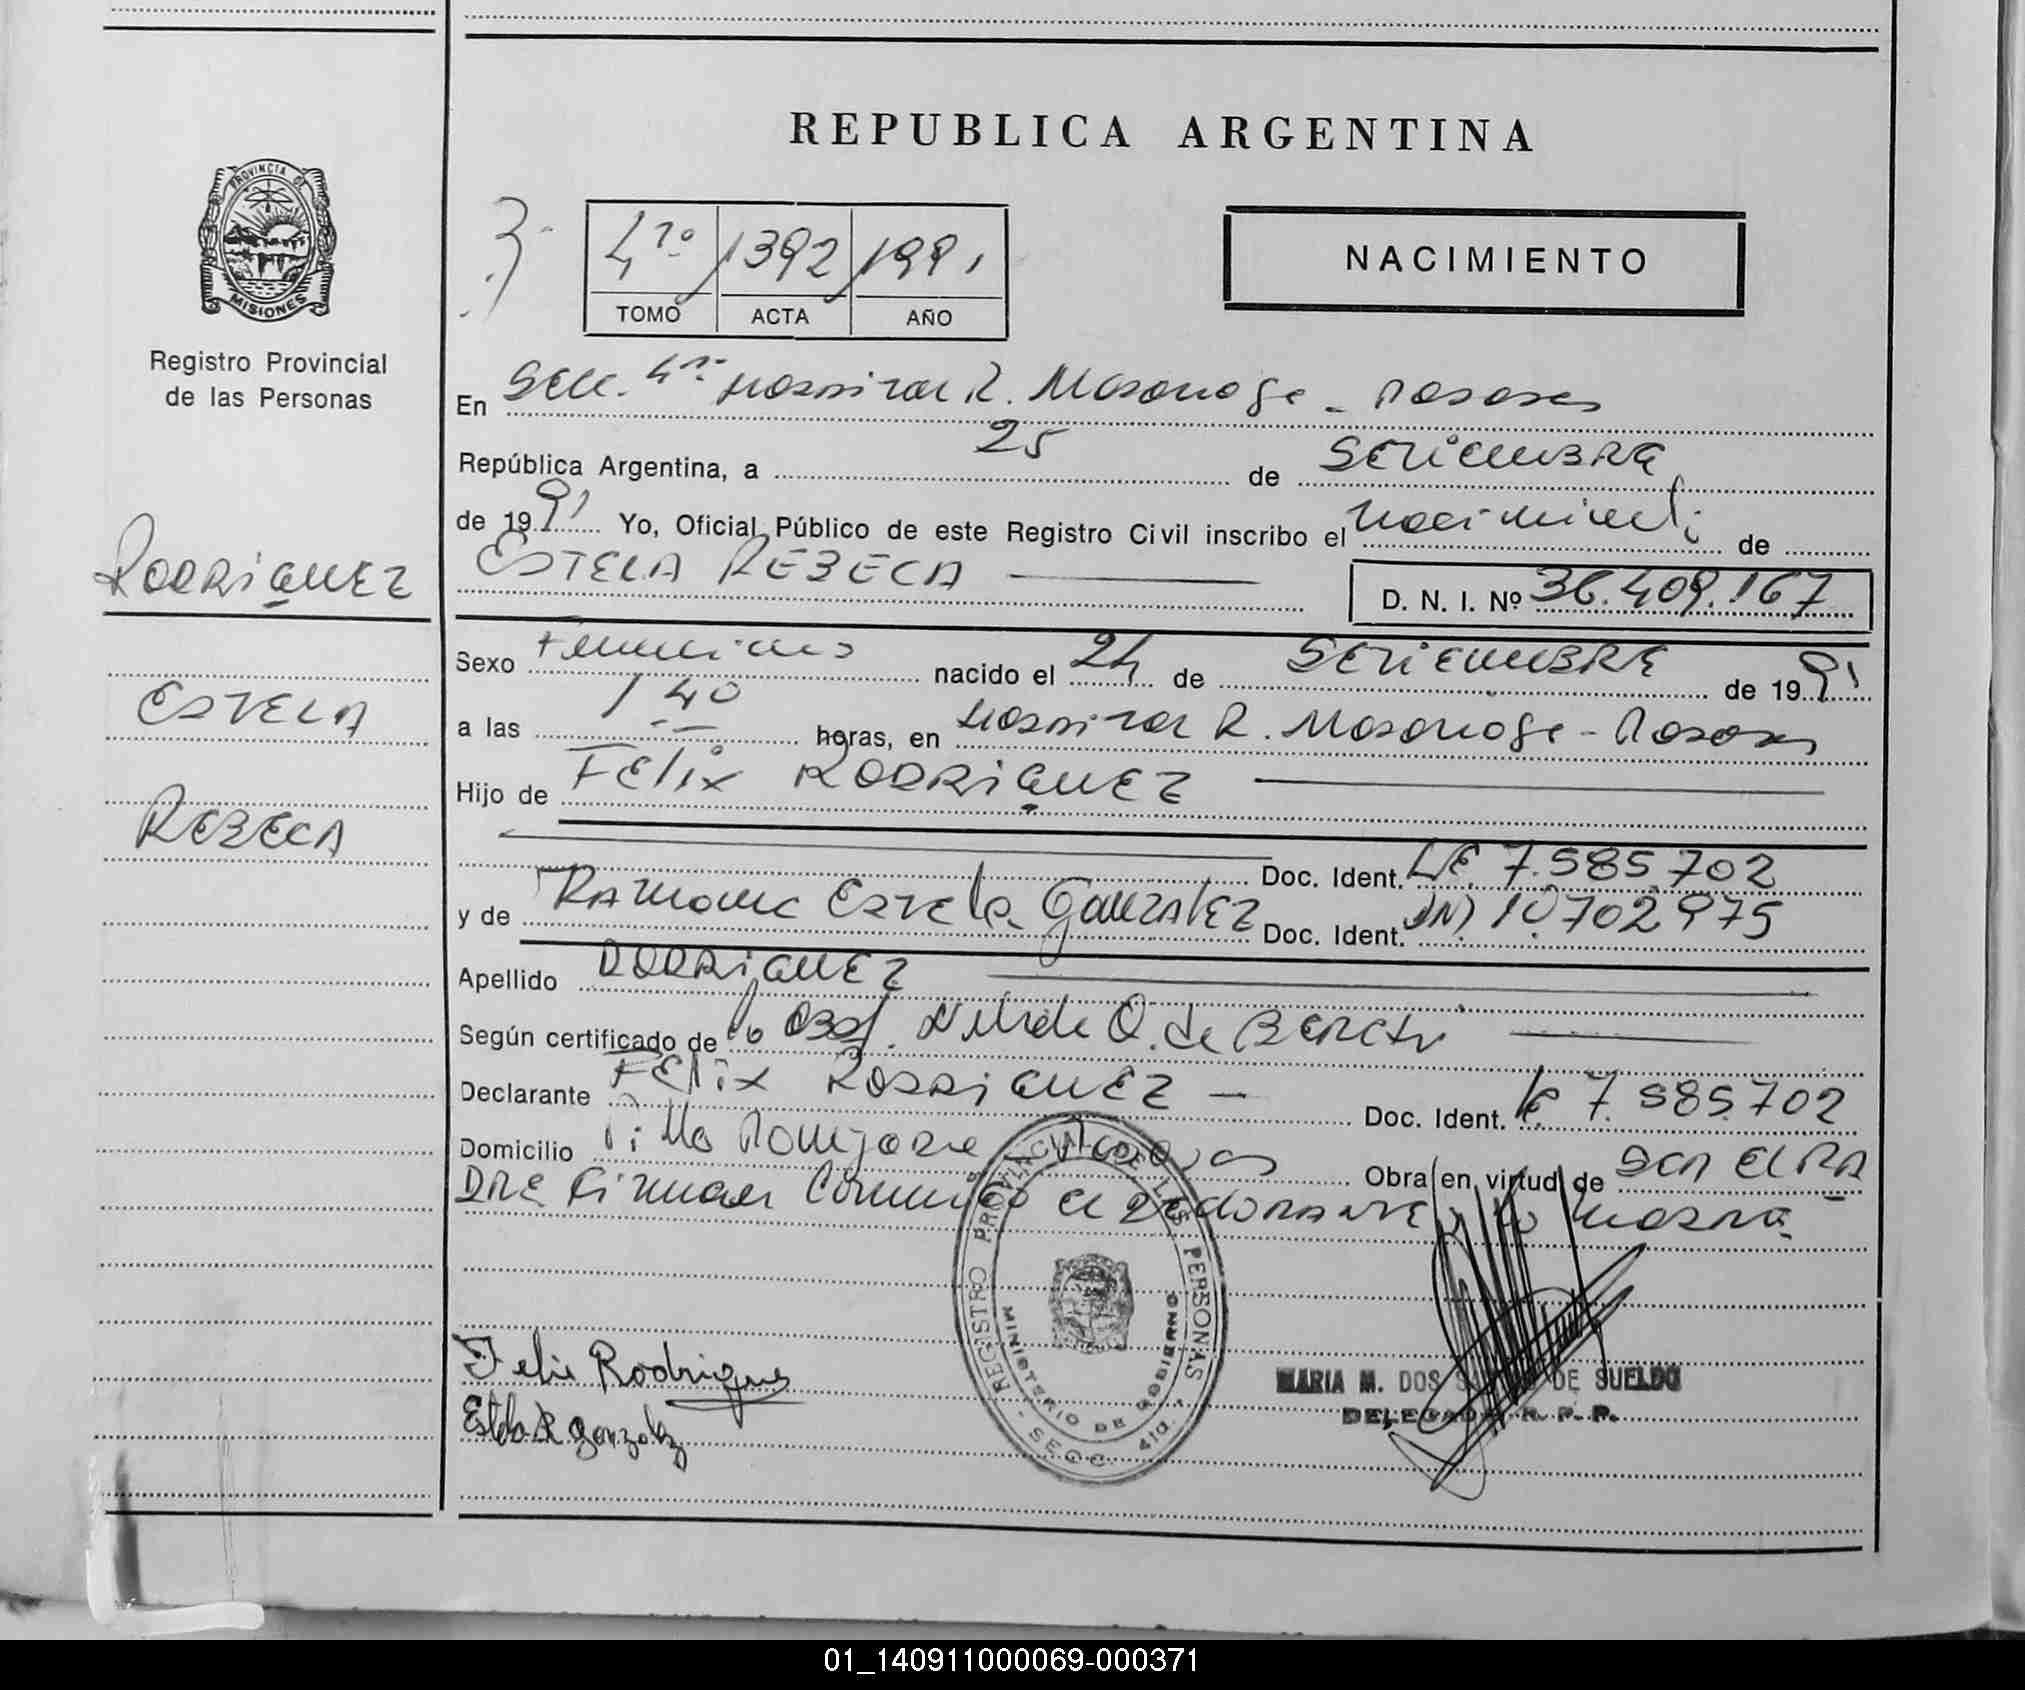 REPUBLICA ARGENTINA
PROVINCIA DE
MISIONES
Registro Provincial
de las Personas
4to 1392 1991
TOMO ACTA AÑO
NACIMIENTO
En Secc. 4ta Hospital R. Madariaga - Posadas
República Argentina, a 25 de SETIEMBRE
de 1991 Yo, Oficial Público de este Registro Civil inscribo el nacimiento de
ESTELA REBECA D. N. I. Nº 36.409.167
RODRIGUEZ
ESTELA
REBECA
Sexo Femenino nacido el 24 de SETIEMBRE de 1991
a las 1 40 horas, en Hospital R. Madariaga - Posadas
Hijo de FELIX RODRIGUEZ
Doc. Ident. LE. 7.585702
y de RAMONA Estela GONZALEZ Doc. Ident. DNI 10.702975
Apellido RODRIGUEZ
Según certificado de la Obst. Nilda O. de
Declarante FELIX RODRIGUEZ - Doc. Ident. LE 7.585.702
Domicilio Posadas Obra en virtud de SER EL PA
DRE Firman Conmigo el DECLARANTE y la MADRE
REGISTRO PROVINCIAL DE LAS PERSONAS
MINISTERIO DE GOBIERNO
SECC. 4ta.
Felix Rodrigues
Estela R Gonzalez
MARIA M. DOS SANTOS DE SUELDO
DELEGADA R. P. P.
01_140911000069-000371